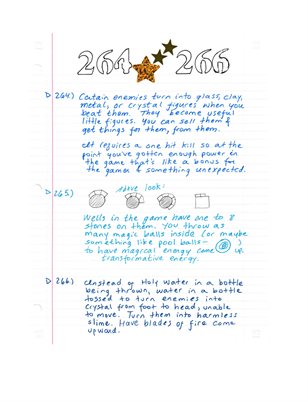 264 266
264.) Certain enemies turn into glass, clay,
metal, or crystal figures when you
beat them. They become useful
little figures. You can sell them &
get things for them, from them.
It requires a one hit kill so at the
point you've gotten enough power in
the game that's like a bonus for
the games & something unexpected.
265.) stove look:
Wells in the game have one to 8
stones on them. You throw as
many magic balls inside (or maybe
something like pool balls—
to have magical energy come up
transformative energy.
266.) Instead of Holy Water in a bottle
being thrown, water in a bottle
tossed to turn enemies into
crystal from foot to head, unable
to move. Turn them into harmless
slime. Have blades of fire come
upward.